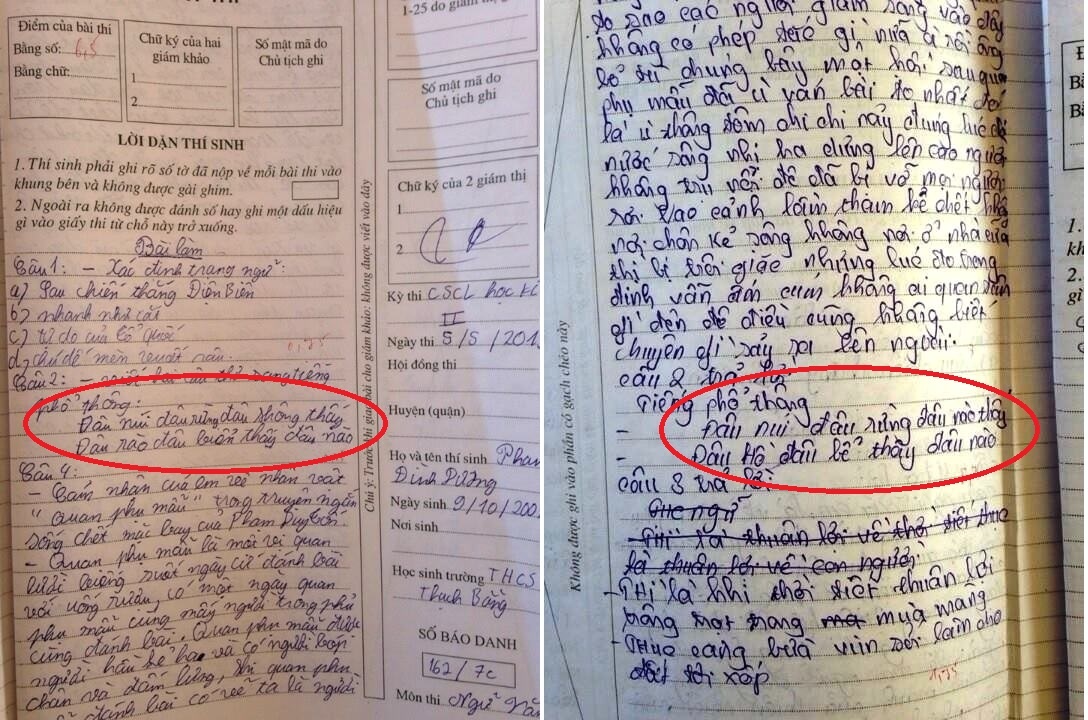 Điểm của bài thi
Bằng số: 6,5
Bằng chữ:
Chữ ký của hai
giám khảo
1
2
Số mật mã do
Chủ tịch ghi
LỜI DẶN THÍ SINH
1. Thí sinh phải ghi rõ số tờ đã nộp về mỗi bài thi vào
khung bên và không được gài ghim.
2. Ngoài ra không được đánh số hay ghi một dấu hiệu
gì vào giấy thi từ chỗ này trở xuống.
Bài làm
Câu 1: – Xác định trạng ngữ:
a) Sau chiến thắng Điện Biên
b) nhanh như cắt
c) tự do của tổ quốc
d) chú dế mèn
Câu 2:
phổ thông:
Đâu núi đâu rừng đâu không thấy
Đâu rào đâu thấy đâu nào
Câu 4:
– Cảm nhận của em về nhân vật
"Quan phụ mẫu" trong truyện ngắn
sống chết mặc bay của Phạm Duy Tốn.
– Quan phụ mẫu là một vị quan
ngày cứ đánh bài
với uống rượu, có một ngày quan
phụ mẫu cùng mấy người trong phủ
cùng đánh bài, Quan phụ mẫu được
người hầu kẻ hạ và có người bóp
chân và đấm lưng, khi quan phụ
đánh bài có vẻ ta là người
1-25 do giám
Số mật mã do
Chủ tịch ghi
Chữ ký của 2 giám thị
1
2
Kỳ thi CSCL học kì
II
Ngày thi 5/5/201
Hội đồng thi
Huyện (quận)
Họ và tên thí sinh Phan
Đình Dương
Ngày sinh 9/10/200
Nơi sinh
Học sinh trường THCS
Thạch Bằng
SỐ BÁO DANH
162/7c
Môn thi Ngữ Văn
Chú ý: Trước khi giao bài cho giám khảo: không được viết vào đây
do sao các người giám sông vào đây
không có phép tắc gì nữa à rồi ông
chúng bây một hồi sau quan
phụ mẫu đã ù ván bài to nhất đó
là ù thông tôm chi chi nảy đúng lúc đó
nước sông nhị hà dâng lên cao người
không trụ nổi đê đã bị vỡ mọi người
rơi vào cảnh lầm than kẻ chết không
nơi chôn kẻ sông không nơi ở nhà cửa
thì bị nhưng lúc đó trong
đình vẫn ấm cúm không ai quan tâm
gì đến đê điều cũng không biết
chuyện gì sảy ra bên ngoài.
câu 2 trả lời
Tiếng phổ thông
– Đâu núi đâu rừng đâu nào thấy
– Đâu Hồ đâu bể thấy đâu nào
câu 3 trả lời:
Tục ngữ
– Thì là thuận lợi về thời tiết thục
là thuận lợi về con người
– Thì là khi thời tiết thuận lợi
trồng trọt trong mùa màng
– Thục cang bừa vun xới làm cho
đất tơi xốp
1,75
Không được ghi vào phần có gạch chéo này